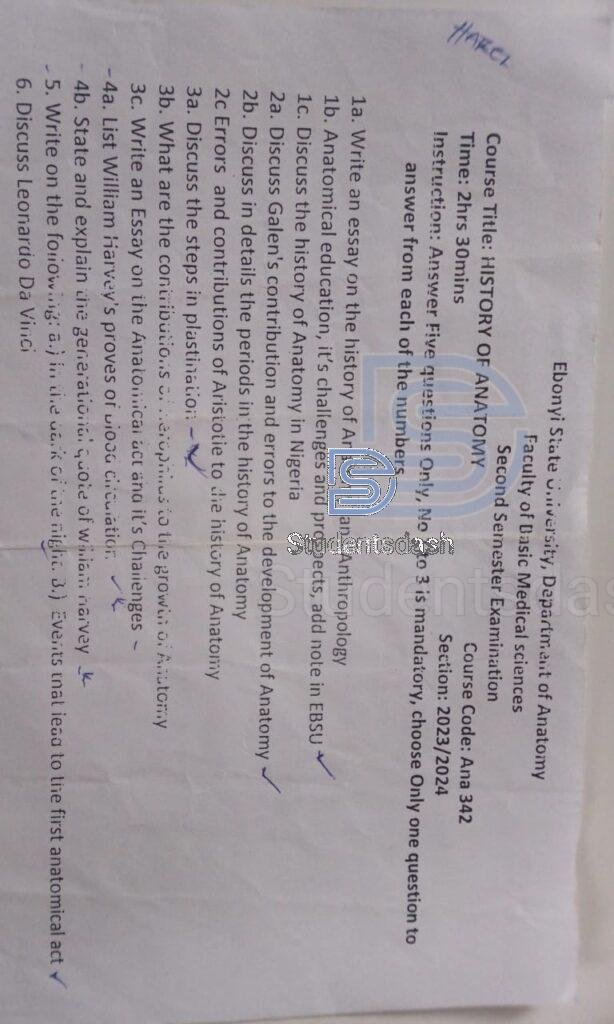 HARCL
Ebonyi State University, Department of Anatomy
Faculty of Basic Medical sciences
Second Semester Examination
Course Title: HISTORY OF ANATOMY Course Code: Ana 342
Time: 2hrs 30mins Section: 2023/2024
Instruction: Answer Five questions Only, No to 3 is mandatory, choose Only one question to
answer from each of the numbers
1a. Write an essay on the history of Anthropology
1b. Anatomical education, it's challenges and prospects, add note in EBSU
1c. Discuss the history of Anatomy in Nigeria
2a. Discuss Galen's contribution and errors to the development of Anatomy
2b. Discuss in details the periods in the history of Anatomy
2c Errors and contributions of Aristotle to the history of Anatomy
3a. Discuss the steps in plastination
3b. What are the contributions of Herophilus to the growth of Anatomy
3c. Write an Essay on the Anatomical act and it's Challenges
4a. List William Harvey's proves of blood circulation
4b. State and explain the generational quote of William Harvey
5. Write on the following: a.) In the dark of the night. B.) Events that lead to the first anatomical act
6. Discuss Leonardo Da Vinci
Studentsdash
StudentsDas